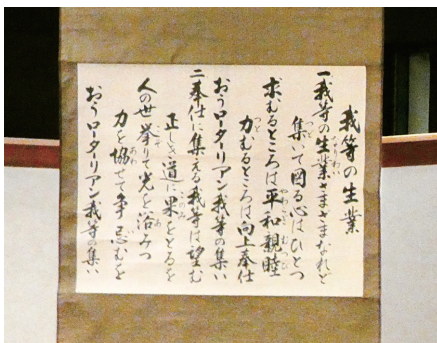 我等の生業
一我等の生業さまざまなれど
集いて図る心はひとつ
求むるところは平和親睦
力むるところは向上奉仕
おうロータリアン我等の集い
二奉仕に集える我等は望む
正しき道に果をとるを
人の世挙りて光を浴みつ
力を協せて争忌むを
おうロータリアン我等の集い